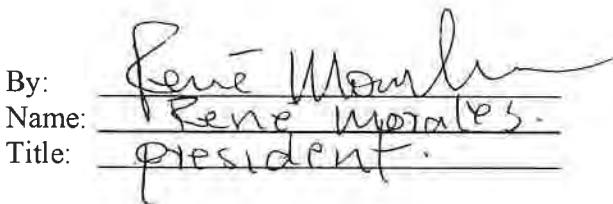 By: René
Name: René Morales.
Title: president.